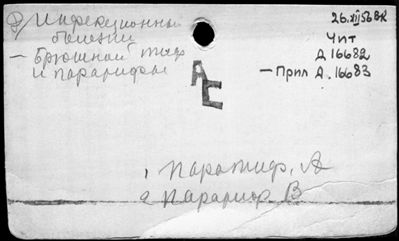 Инфекционные
болезни
— Брюшной тиф
и паратифы
26.XII.56
Чит
Д 16682
— Прил А. 16683
АС
1 Паратиф. А
2 Паратиф. В